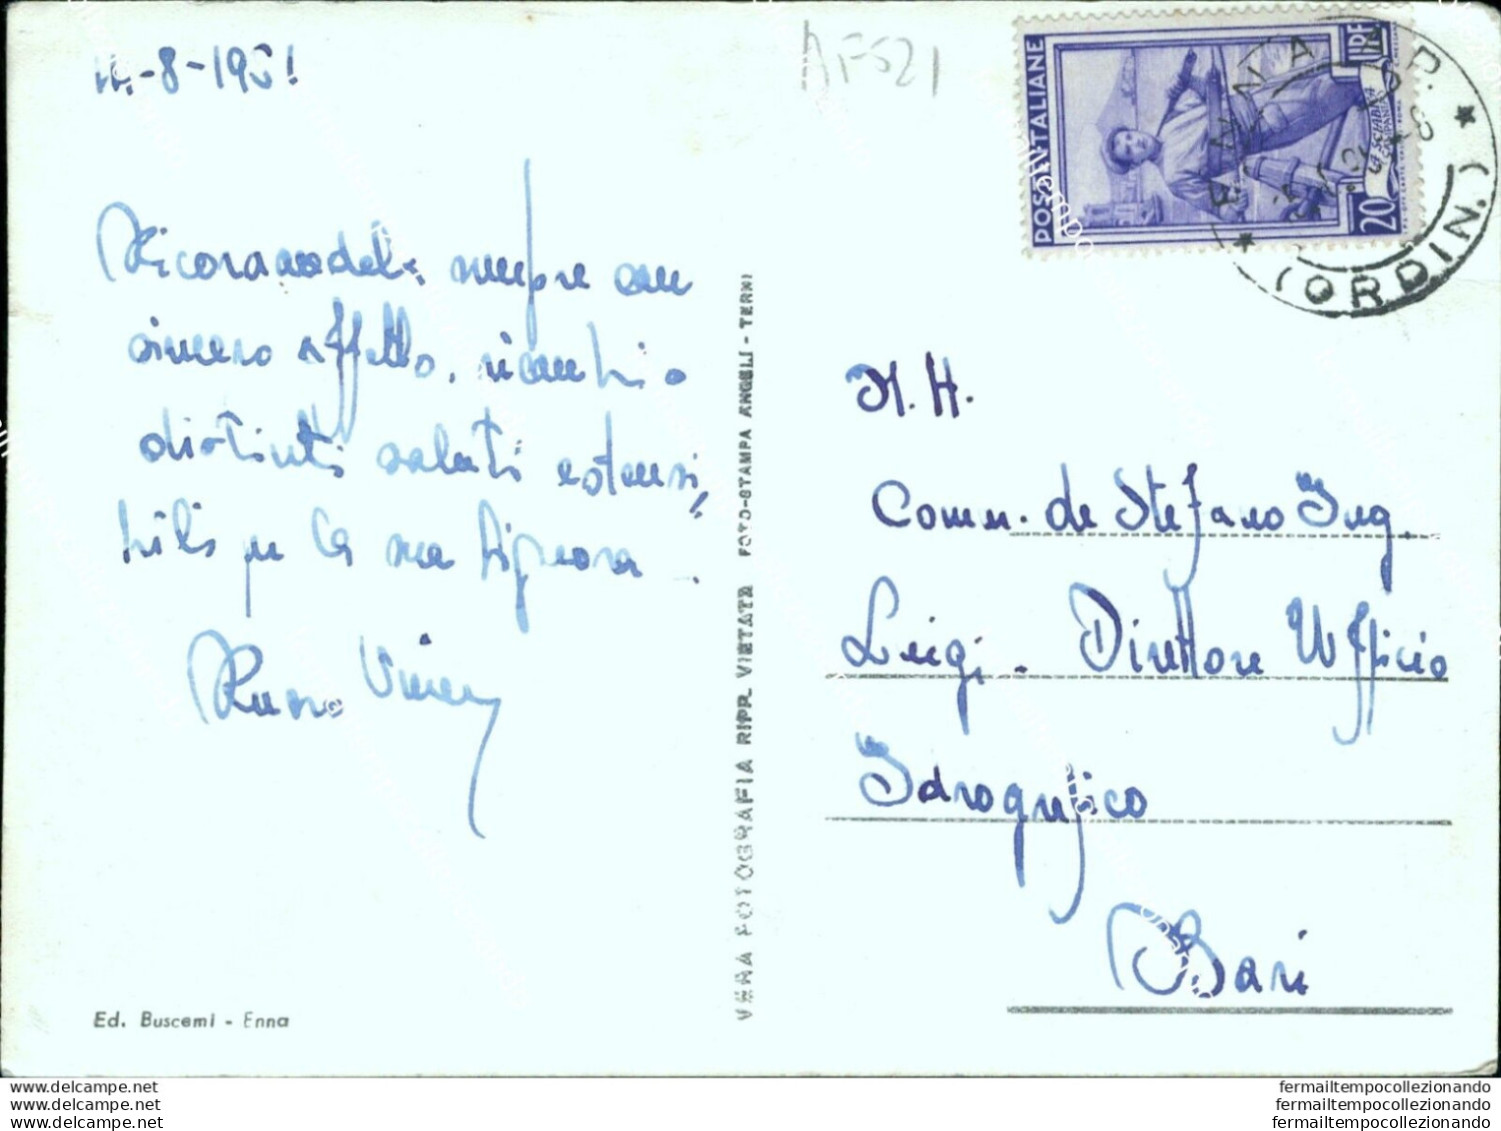 -8-1951
AF521
POSTE ITALIANE
LIRE
20
ENNA
(ORDIN.)
Ricordandola sempre con
sincero affetto, ricambio
distinti saluti estensi,
bili per la sua Signora.
Russo
N. H.
Comm. de Stefano Ing.
Luigi - Direttore Ufficio
Idrografico
Bari
VERA FOTOGRAFIA RIPR. VIETATA FOTO-STAMPA ANGELI - TERNI
Ed. Buscemi - Enna
delcampe.net
delcampe.net
delcampe.net
fermailtempocollezionando
fermailtempocollezionando
fermailtempocollezionando